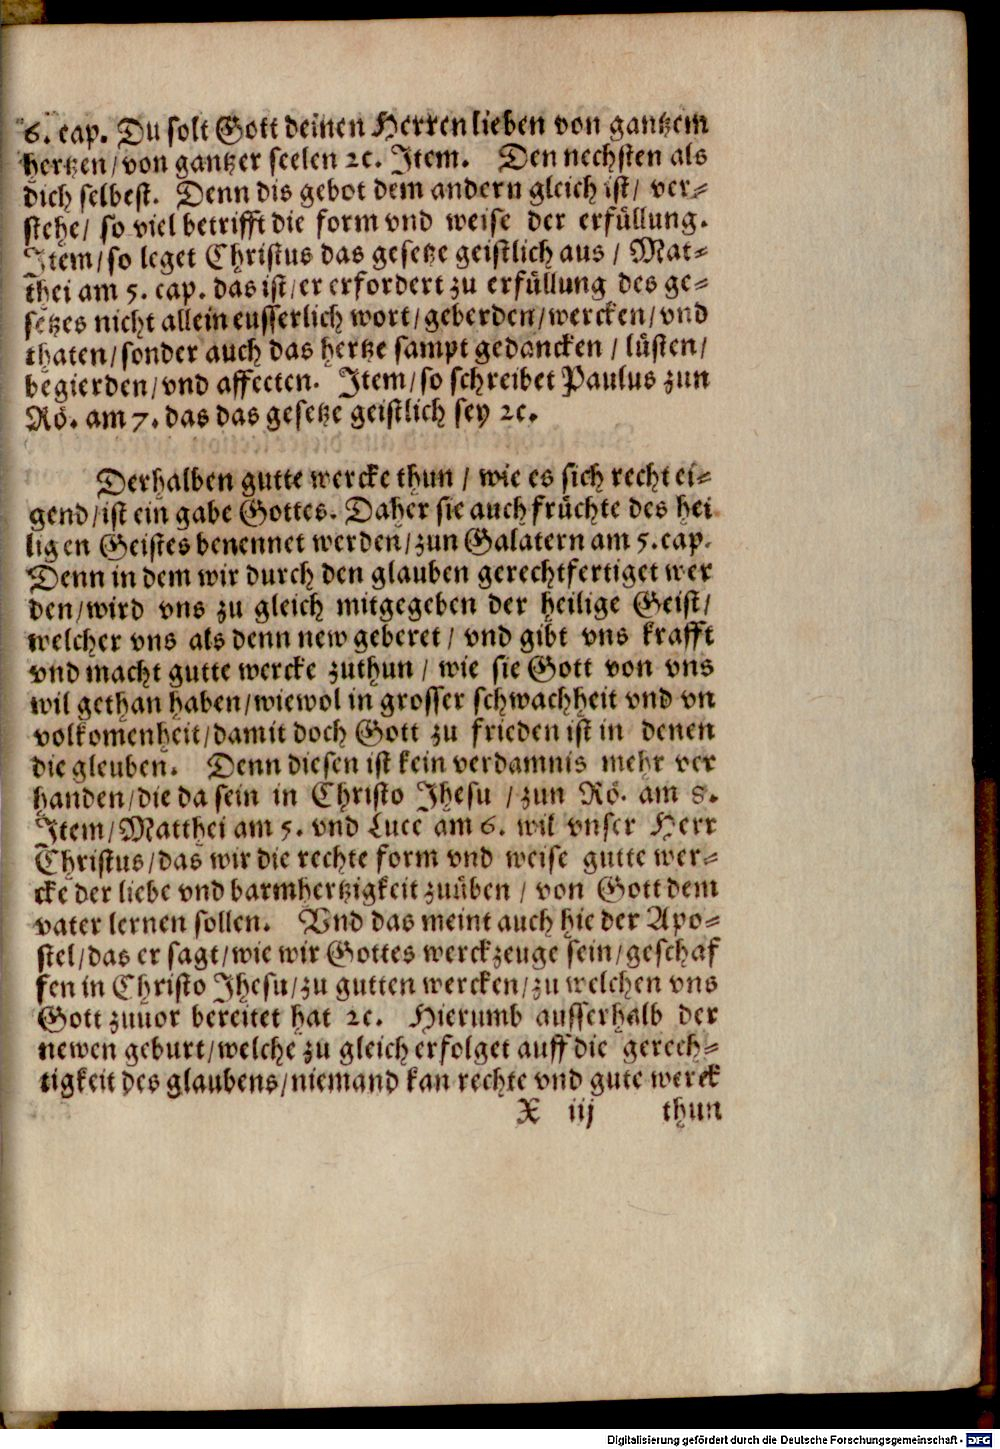 6. cap. Du solt Gott deinen Herren lieben von gantzem
hertzen/von gantzer seelen ꝛc. Item. Den nechsten als
dich selbest. Denn dis gebot dem andern gleich ist/ ver⸗
stehe/ so viel betrifft die form vnd weise der erfüllung.
Item/so leget Christus das gesetze geistlich aus / Mat⸗
thei am 5. cap. das ist/er erfordert zu erfüllung des ge⸗
setzes nicht allein eusserlich wort/geberden/wercken/vnd
thaten/sonder auch das hertze sampt gedancken / lüsten/
begierden/vnd affecten. Item/so schreibet Paulus zun
Rö. am 7. das das gesetze geistlich sey ꝛc.
Derhalben gutte wercke thun / wie es sich recht ei⸗
gend/ist ein gabe Gottes. Daher sie auch früchte des hei
ligen Geistes benennet werden/zun Galatern am 5.cap.
Denn in dem wir durch den glauben gerechtfertiget wer
den/wird vns zu gleich mitgegeben der heilige Geist/
welcher vns als denn new geberet / vnd gibt vns krafft
vnd macht gutte wercke zuthun / wie sie Gott von vns
wil gethan haben/wiewol in grosser schwachheit vnd vn
volkomenheit/damit doch Gott zu frieden ist in denen
die gleuben. Denn diesen ist kein verdamnis mehr ver
handen/die da sein in Christo Jhesu /zun Rö. am 8.
Item/Matthei am 5. vnd Luce am 6. wil vnser Herr
Christus/das wir die rechte form vnd weise gutte wer⸗
cke der liebe vnd barmhertzigkeit zuüben / von Gott dem
vater lernen sollen. Vnd das meint auch hie der Apo⸗
stel/das er sagt/wie wir Gottes werckzeuge sein/geschaf
fen in Christo Jhesu/zu gutten wercken/zu welchen vns
Gott zuuor bereitet hat ꝛc. Hierumb ausserhalb der
newen geburt/welche zu gleich erfolget auff die gerech⸗
tigkeit des glaubens/niemand kan rechte vnd gute werck
X iij thun
Digitalisierung gefördert durch die Deutsche Forschungsgemeinschaft - DFG